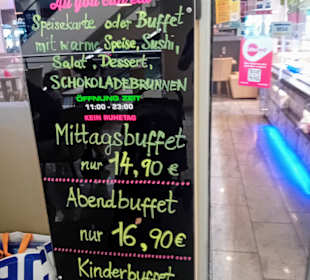 All you can eat
Speisekarte oder Buffet
mit warme Speise, Sushi,
Salat, Dessert,
SCHOKOLADEBRUNNEN
ÖFFNUNG ZEIT
11:00 - 23:00
KEIN RUHETAG
Mittagsbuffet
nur 14,90 €
Abendbuffet
nur 16,90€
Kinderbuffet